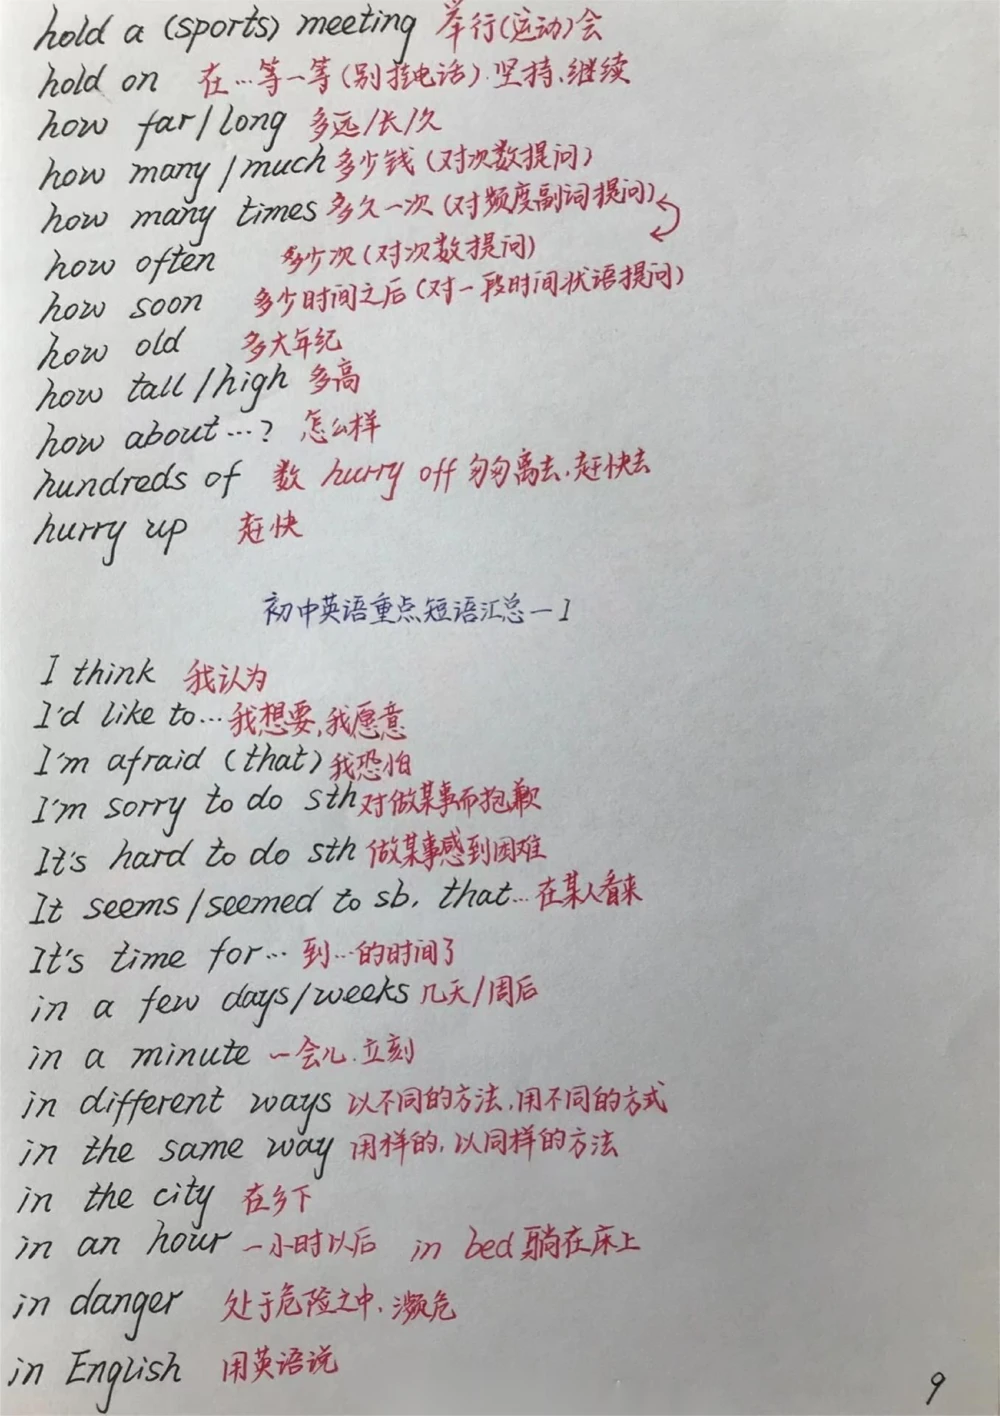 hold a (sports) meeting 举行(运动)会
hold on 在…等一等(别挂电话).坚持、继续
how far/long 多远/长/久
how many/much 多少钱(对次数提问)
how many times 多久一次(对频度副词提问)
how often 多少次(对次数提问)
how soon 多少时间之后(对一段时间状语提问)
how old 多大年纪
how tall/high 多高
how about…? 怎么样
hundreds of 数 hurry off 匆匆离去.赶快去
hurry up 赶快
初中英语重点短语汇总—I
I think 我认为
I'd like to… 我想要,我愿意
I'm afraid (that) 我恐怕
I'm sorry to do sth 对做某事而抱歉
It's hard to do sth 做某事感到困难
It seems/seemed to sb. that… 在某人看来
It's time for… 到…的时间了
in a few days/weeks 几天/周后
in a minute 一会儿.立刻
in different ways 以不同的方法.用不同的方式
in the same way 用样的,以同样的方法
in the city 在乡下
in an hour 一小时以后 in bed 躺在床上
in danger 处于危险之中、濒危
in English 用英语说
9